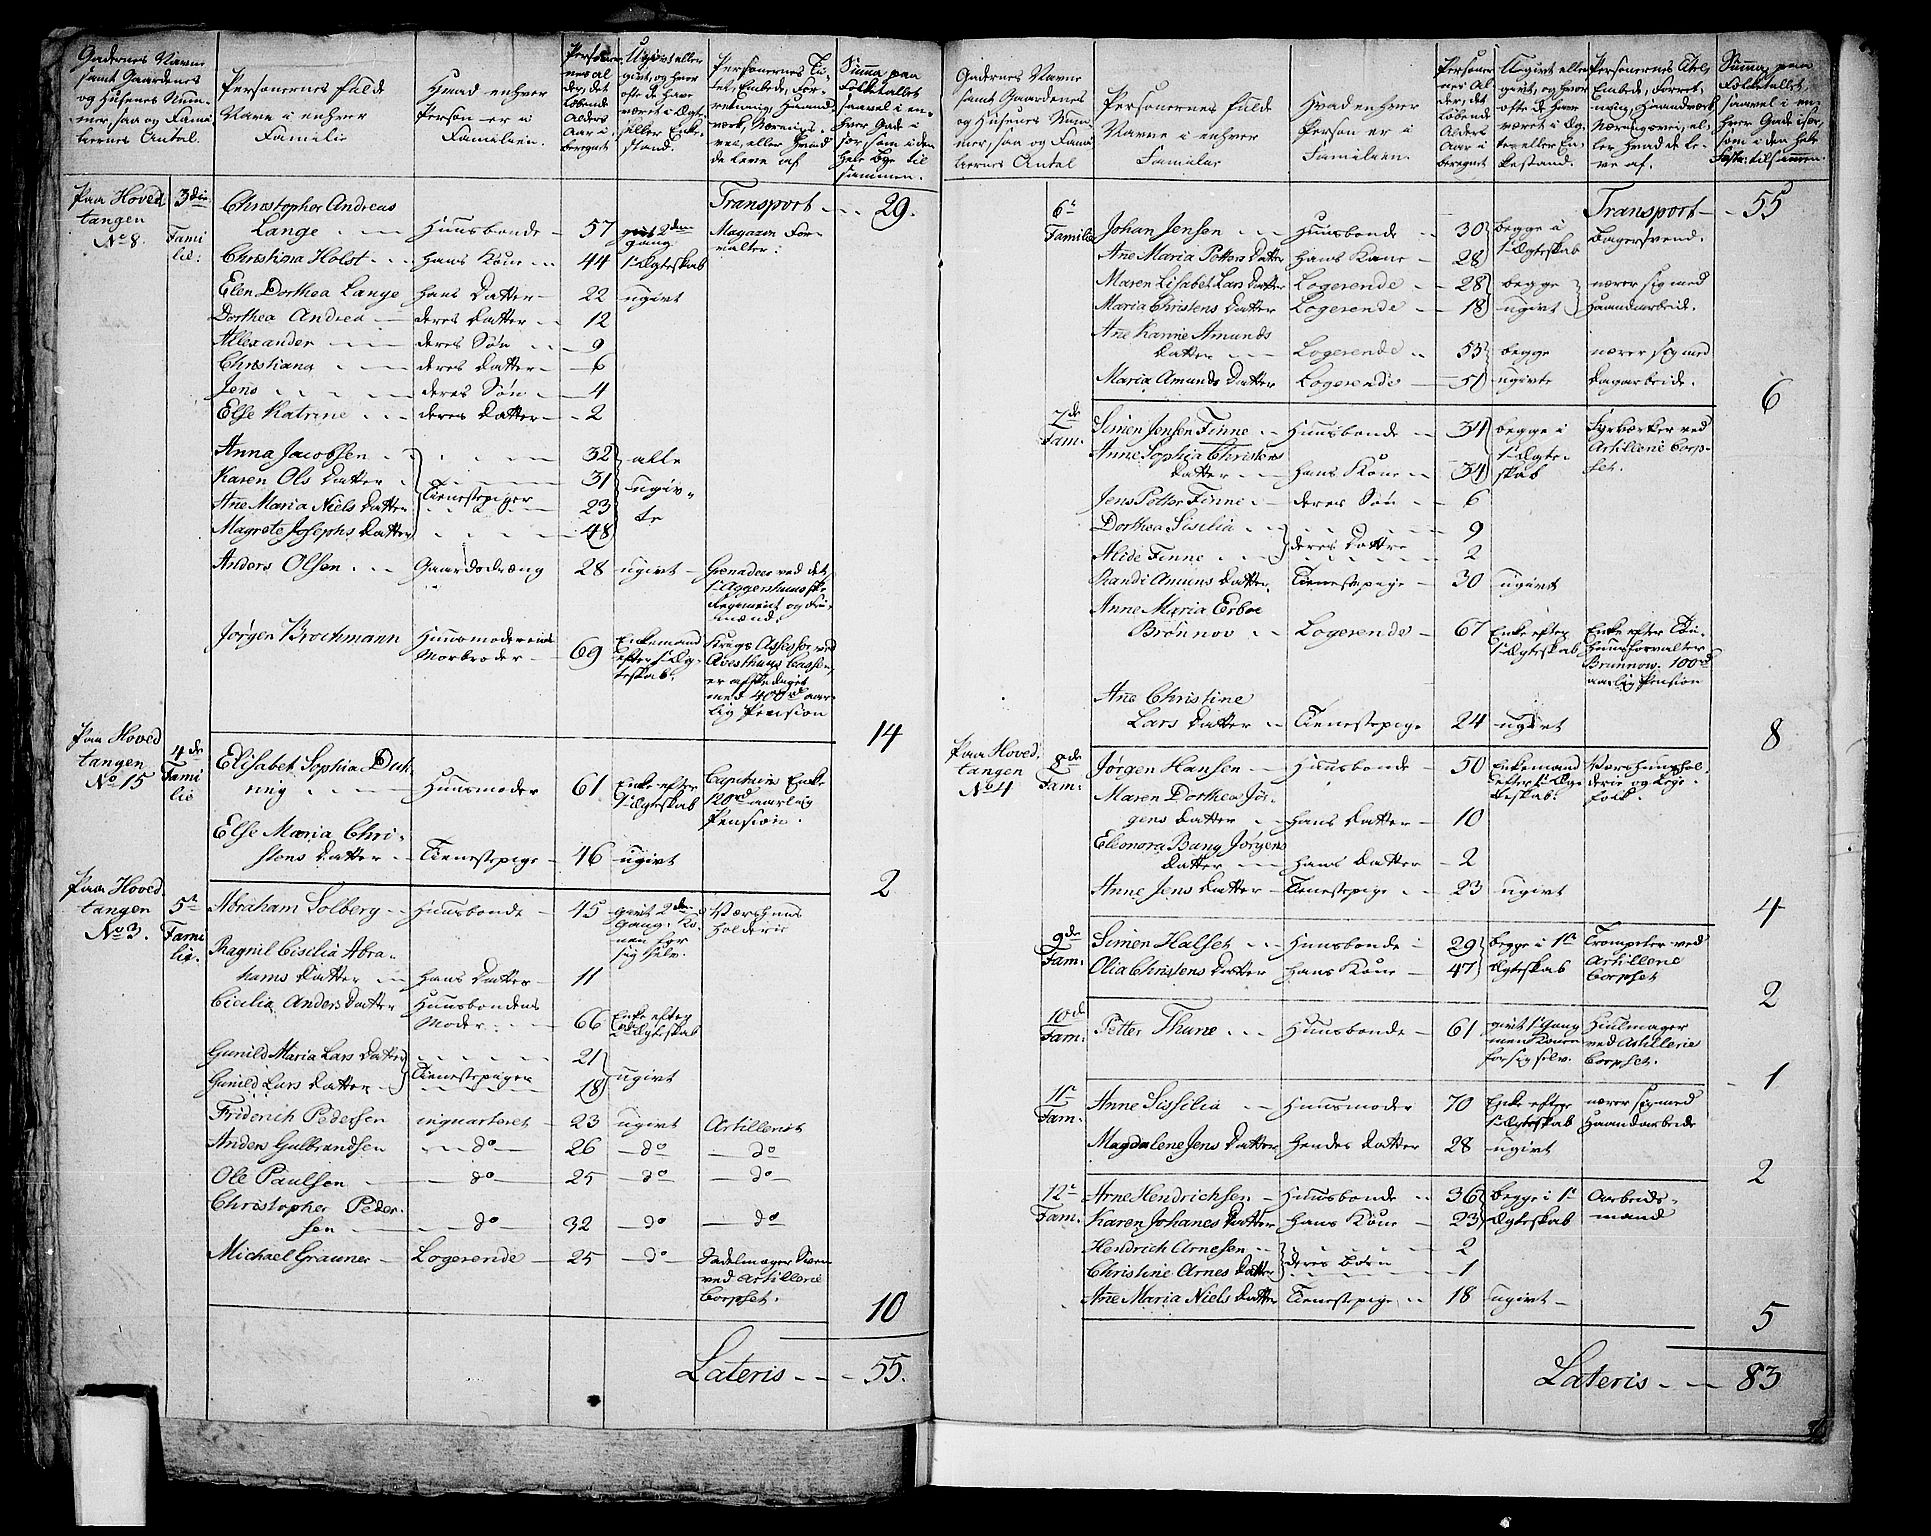 Gadernes Navne
samt Gaardenes
og Husenes Num-
mer, saa og Fami-
liernes Antal.
Personernes fulde
Navne i enhver
Familie
Hvad enhver
Person er i
Familien.
Personer-
nes Al-
der, det
løbende
Alders
Aar i-
beregnet
Ugivt eller
givt, og hvor
ofte de have
været i Ægte-
eller Enke-
stand.
Personernes Ti-
tel, Embede, For-
retning, Haand-
værk, Nærings-
vei, eller hvad
de leve af
Summa paa
Folketallet
saavel i en-
hver Gade i-
sær, som i den
hele Bye til
sammen.
Transport - - 29.
Paa Hoved
tangen
No 8.
3die
Fami
lie:
Christopher Andreas
Lange - - Huusbonde - 57 givt 2den
gang Magazin For-
valter:
Christiana Holst - - hans Kone - - 44 1te Ægteskab
Elen Dorthea Lange hans Datter - 22 ugivt
Dorthea Andrea - deres Datter - - 12
Allexander - - - deres Søn - - 9
Christiana - - - deres Datter - 6
Jens - - - deres Søn - 4
Else Katrine - - deres Datter - 2
Anna Jacobsen - - 32 alle
Karen Ols Datter - 31 ugiv-
Ane Maria Niels Datter Tienestepiger 23 te
Magrete Josephs Datter - 48
Anders Olsen - - - Gaardsdræng 28 ugivt - Grenadeer ved det
1te Aggershuusske
Regiment og Fri-
mænd.
Jørgen Brochmann Huusmoderens
Morbroder - 69 Enkemand
efter 1te Æg-
teskab. Krigs Assessor ved
cassen,
er afskediget
med 400rd aar-
lig Pension
14
Paa Hoved
tangen
No 15
4de
Fami
lie
Elisabet Sophia
- - Huusmoder 61 Enke efter
1te Ægteskab Capitain Enke
120rd aarlig
Pension.
Else Maria Chri-
stens Datter - - Tienestepige - 46 ugivt
2
Paa Hoved
tangen
No 3.
5te
Fami
lie.
Abraham Solberg - Huusbonde - 45 givt 2den
gang. Ko-
nen for
sig selv. Værshuus
holderie
Ragnil Cisilia Abra-
hams Datter - hans Datter - 11
Cicilia Anders Datter Huusbondens
Moder - - 66 Enke efter
Ægteskab
Gunild Maria Lars Datter - 21
Gunild Lars Datter - Tienestepiger 18 ugivt
Friderich Pedersen inquarteret - 23 ugivt Artillerist
Anders Gulbrandsen - do - 26 - do - - do
Ole Paulsen - - do - 25 - do - - do -
Christopher Peder-
sen - - - do - 32 - do - - do
Michael Grauner - Logerende - 25 - do - Sadelmager Sven
ved Artillerie
Corpset.
10
Lateris - - - 55.
Gadernes Navne
samt Gaardenes
og Husenes Num-
mer, saa og Fami-
liernes Antal
Personernes fulde
Navne i enhver
Familie
Hvad enhver
Person er i
Familien.
Personer-
nes Al-
der, det
løbende
Alders
Aar i-
beregnet
Ugivt eller
givt, og hvor
ofte de have
været i Æg-
te- eller En-
kestand.
Personernes Titel,
Embede, Forret-
ning, Haandværk
Næringsvei, el-
ler hvad de le-
ve af.
Summa, paa
Folketallet,
saavel i en
hver Gade især,
som i den hele
Fæstn: tilsammen.
Transport - - 55
6te
Familie
Johan Jensen - - - Huusbonde - 30 begge i
1te Ægteskab Bagersvend.
Ane Maria Petters Datter hans Kone - 28
Maren Lisabet Lars Datter Logerende - 28 begge nærer sig med
Maria Christens Datter Logerende - 18 ugivt Haandarbeide.
Ane Karine Amunds
Datter - - - Logerende - - 55 begge nærer sig med
Maria Amunds Datter Logerende - 51 ugivte Dagarbeide.
6
7de
Fam:
Simen Jensen Finne - - Huusbonde - 34 begge i Fyrværker ved
Anne Sophia Christens 1te Ægte- Artillerie Corp-
Datter - - hans Kone - - 34 skab set.
Jens Petter Finne - - deres Søn - 6
Dorthea Sisilia - - - 9
Alide Finne - - - deres Døttre 2
Randi Amuns Datter. Tienestepige - 30 ugivt
Anne Maria Erboe
Brønnov - - Logerende - 67 Enke efter
1te Ægteskab Enke efter Tøi-
huusforvalter
Brunnow. 100rd
aarlig Pension
Ane Christine
Lars Datter - - Tienestepige - 24 ugivt
8
Paa Hoved,
tangen
No 4
8de
Fam:
Jørgen Hansen - - Huusbonde - 50 Enkemand
efter 1te Æg-
teskab. Værshuushol-
derie og Loge-
folk.
Maren Dorthea Jør-
gens Datter - - hans Datter - 10
Eleonora Bang Jørgens
Datter - - hans Datter - 2
Anne Jens Datter - Tienestepige - - 23 ugivt
4
9de
Fam:
Simen Halset - - - Huusbonde - 29 begge i 1te Trompeter ved
Olia Christens Datter hans Kone - 47 Ægteskab Artillerie
Corpset
2
10de
Fam:
Petter Thune - - - Huusbonde - 61 givt 1te Gang
men Konen
for sig selv. Hiulmager
ved Artillerie
Corpset.
1
11te
Fam:
Anne Sissilia - - Huusmoder 70 Enke efter
1te Ægteskab nærer sig med
Haandarbeide
Magdalene Jens Datter hendes Datter 28 ugivt
2
12te
Fam.
Arne Hendrichsen - Huusbonde - - 36 begge i 1te Aarbeids-
Karen Johanes Datter hans Kone - 23 Ægteskab mand
Hendrich Arnesen - - 2
Christine Arnes Datter deres Børn - 1
Ane Maria Niels Datter Tienestepige - - 18 ugivt -
5
Lateris - - - 83